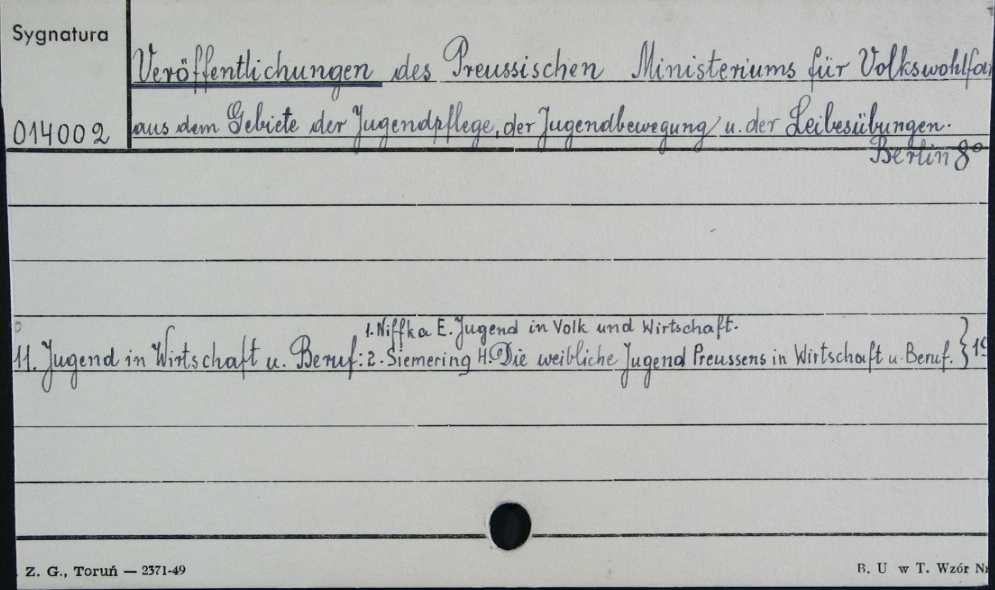 Sygnatura
014002
Veröffentlichungen des Preussischen Ministeriums für Volkswohlfa
aus dem Gebiete der Jugendpflege, der Jugendbewegung u. der Leibesübungen.
Berlin 8°
1. Niffka E. Jugend in Volk und Wirtschaft.
11. Jugend in Wirtschaft u. Beruf: 2. Siemering H. Die weibliche Jugend Preussens in Wirtschaft u. Beruf. } 19
Z. G., Toruń — 2371-49
B. U w T. Wzór Nr